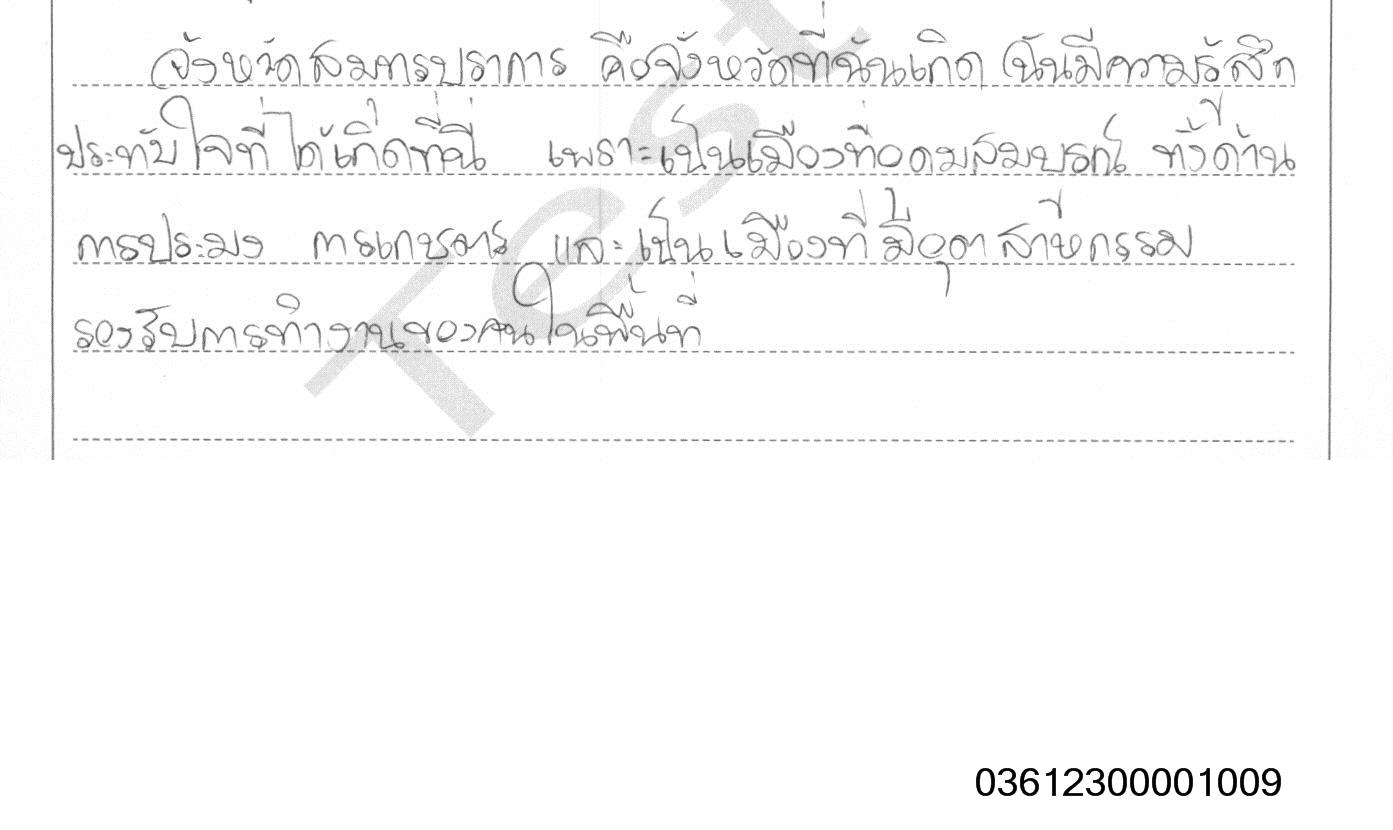 จังหวัดสมทรปราการ คือจังหวัดที่ฉันเกิด ฉันมีความรู้สึก
ประทับใจที่ได้เกิดที่นี่ เพราะเป็นเมืองที่อดมสมบรณ์ ทั้งด้าน
การประมง การเกษตร และเป็นเมืองที่มีอุตสาหกรรม
รองรับการทำงานของคนในพื้นที่
Test
03612300001009